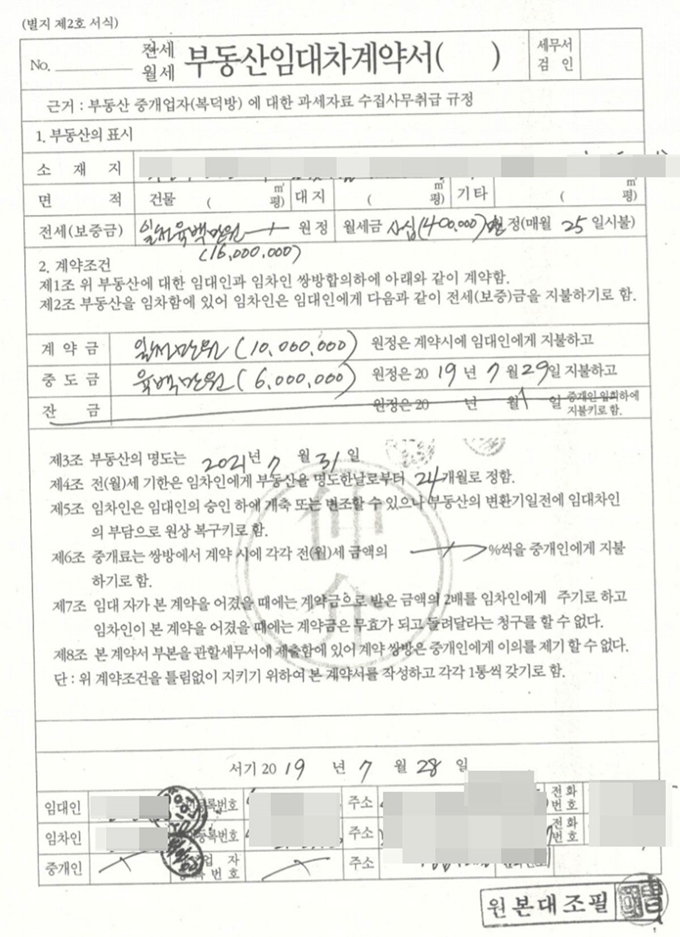 (별지 제2호 서식)
No. 전세 월세 부동산임대차계약서( ) 세무서 검 인
근거 : 부동산 중개업자(복덕방) 에 대한 과세자료 수집사무취급 규정
1. 부동산의 표시
소 재 지
면 적 건물 ( ㎡ 평) 대지 ( ㎡ 평) 기타 ( ㎡ 평)
전세(보증금) 일천육백만원 원정 월세금 사십(400,000)원정(매월 25일시불)
(16,000,000)
2. 계약조건
제1조 위 부동산에 대한 임대인과 임차인 쌍방합의하에 아래와 같이 계약함.
제2조 부동산을 임차함에 있어 임차인은 임대인에게 다음과 같이 전세(보증)금을 지불하기로 함.
계 약 금 일천만원(10,000,000) 원정은 계약시에 임대인에게 지불하고
중 도 금 육백만원(6,000,000) 원정은 2019년 7월 29일 지불하고
잔 금 원정은 20 년 월 일 중개인 입회하에 지불키로 함.
제3조 부동산의 명도는 2021년 7월 31일
제4조 전(월)세 기한은 임차인에게 부동산을 명도한날로부터 24개월로 정함.
제5조 임차인은 임대인의 승인 하에 개축 또는 변조할 수 있으나 부동산의 변환기일전에 임대차인
의 부담으로 원상 복구키로 함.
제6조 중개료는 쌍방에서 계약 시에 각각 전(월)세 금액의 %씩을 중개인에게 지불
하기로 함.
제7조 임대 자가 본 계약을 어겼을 때에는 계약금으로 받은 금액의 2배를 임차인에게 주기로 하고
임차인이 본 계약을 어겼을 때에는 계약금은 무효가 되고 돌려달라는 청구를 할 수 없다.
제8조 본 계약서 부본을 관할세무서에 제출함에 있어 계약 쌍방은 중개인에게 이의를 제기 할 수 없다.
단 : 위 계약조건을 틀림없이 지키기 위하여 본 계약서를 작성하고 각각 1통씩 갖기로 함.
仲介
서기 2019 년 7 월 28 일
임대인 등록번호 주소 전화번호
임차인 등록번호 주소 전화번호
중개인 업 자 번 호 주소
원본대조필